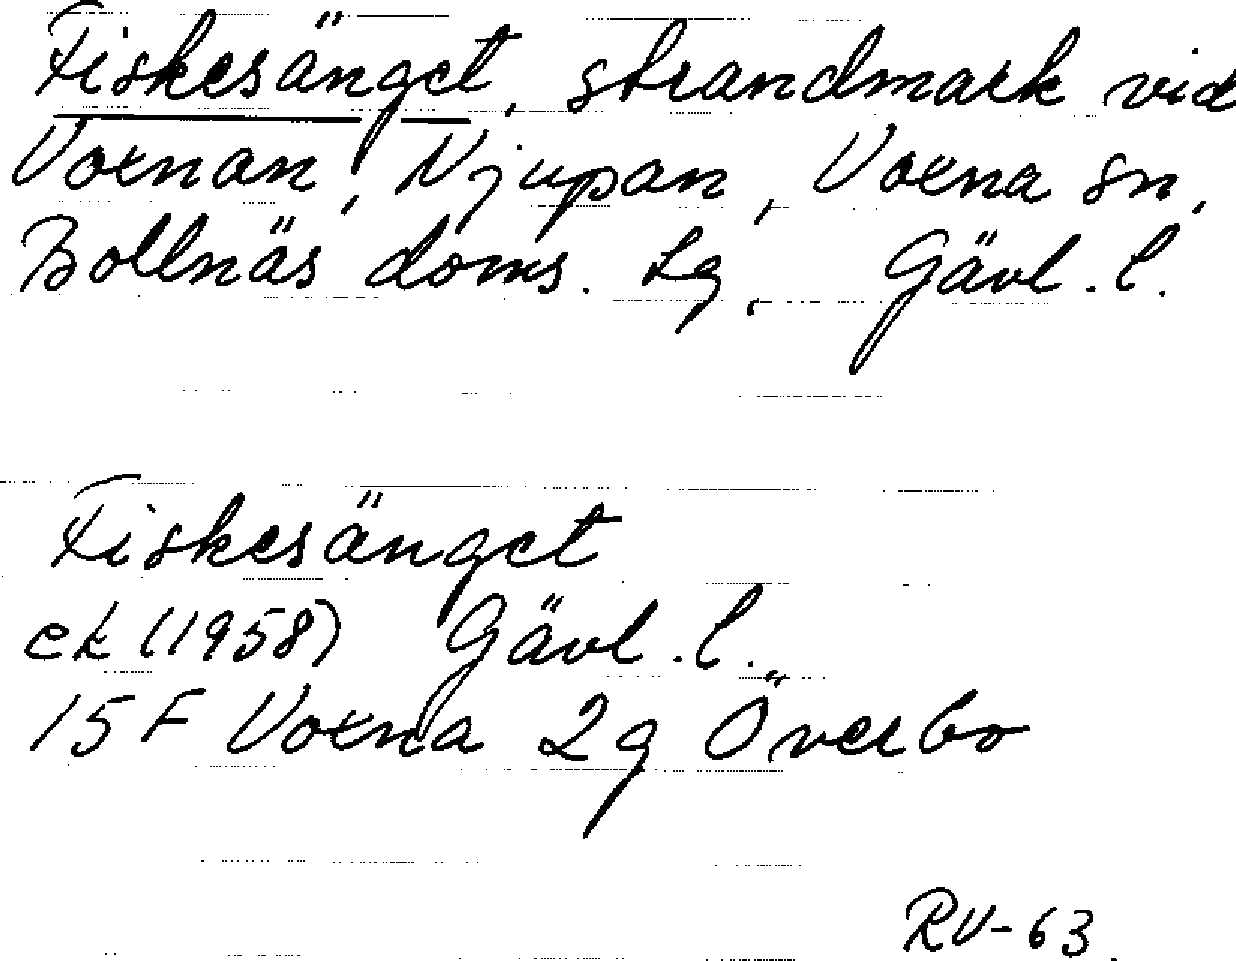 Fiskesänget, strandmark vid
Voxnan, Njupan, Voxna sn,
Bollnäs doms. Lg, Gävl. l.
Fiskesänget
ek (1958) Gävl. l.
15 F Voxna 2g Överbo
RV-63.